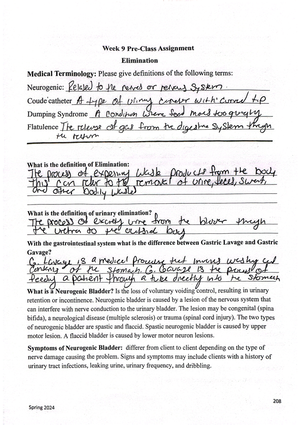 Week 9 Pre-Class Assignment
Elimination
Medical Terminology: Please give definitions of the following terms:
Neurogenic: Related to the nerves or nervous system
Coude catheter A type of urinary catheter with curved tip
Dumping Syndrome A condition where food moves too quickly
Flatulence The release of gas from the digestive system through
the rectum
What is the definition of Elimination:
The process of expelling waste products from the body
This can refer to the removal of urine, feces, sweat,
and other bodily wastes
What is the definition of urinary elimination?
The process of excreting urine from the bladder through
the urethra to the body
With the gastrointestinal system what is the difference between Gastric Lavage and Gastric
Gavage?
G. Lavage is a medical procedure that involves washing out
contents of the stomach. G. Gavage is the process of
feeding a patient through a tube directly into the stomach
What is a Neurogenic Bladder? Is the loss of voluntary voiding control, resulting in urinary
retention or incontinence. Neurogenic bladder is caused by a lesion of the nervous system that
can interfere with nerve conduction to the urinary bladder. The lesion may be congenital (spina
bifida), a neurological disease (multiple sclerosis) or trauma (spinal cord injury). The two types
of neurogenic bladder are spastic and flaccid. Spastic neurogenic bladder is caused by upper
motor lesion. A flaccid bladder is caused by lower motor neuron lesions.
Symptoms of Neurogenic Bladder: differer from client to client depending on the type of
nerve damage causing the problem. Signs and symptoms may include clients with a history of
urinary tract infections, leaking urine, urinary frequency, and dribbling.
208
Spring 2024